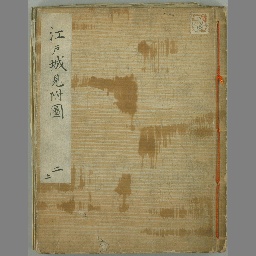 江戸城見附圖
二